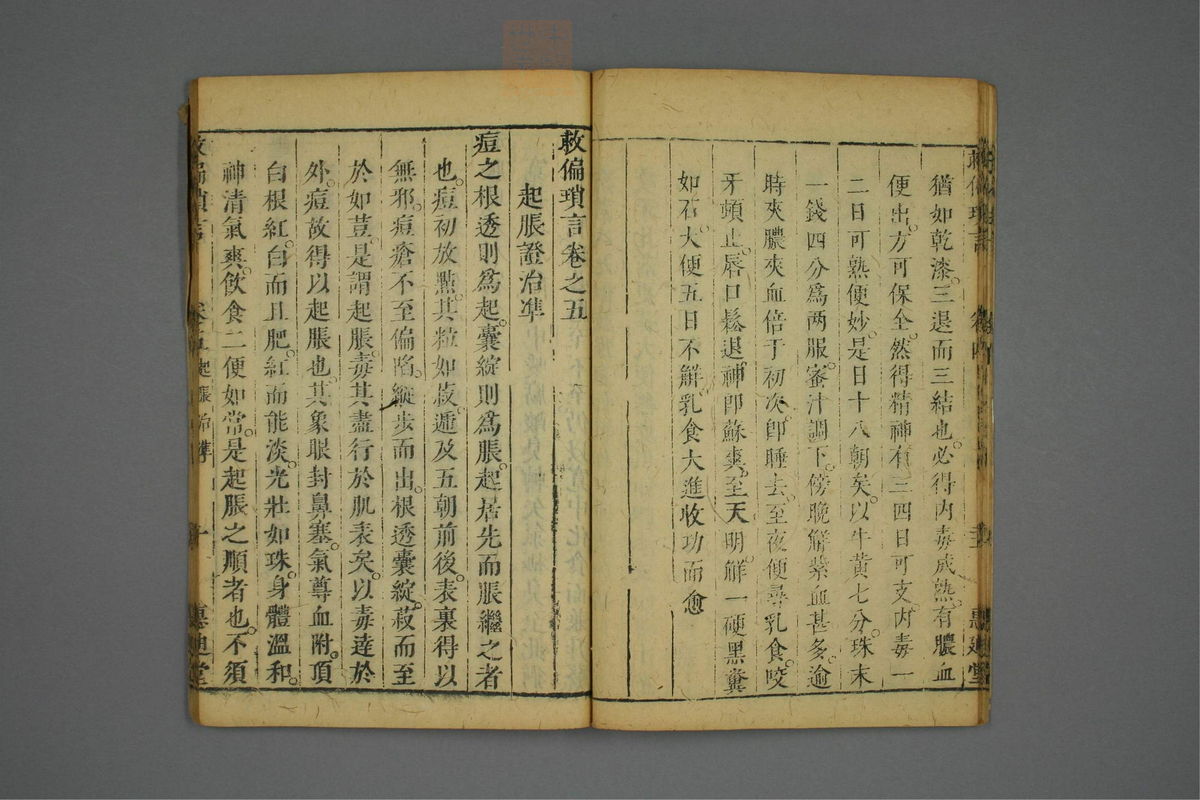 猶如乾漆。三退而三結也。必得内毒成熟。有膿血
便出。方可保全。然得精神有三四日可支。内毒一
二日可熟便妙。是日十八朝矣。以牛黄七分。珠末
一錢四分爲两服。蜜汁調下。傍晚解紫血甚多。逾
時夾膿夾血倍于初次。卽睡去。至夜便尋乳食。咬
牙頓止。唇口鬆退。神卽蘇爽。至天明。解一硬黑糞
如石。大便五日不解。乳食大進收功而愈
救偏瑣言卷之五
起脹證治準
痘之根透則爲起。囊綻則爲脹。起居先而脹繼之者
也。痘初放㸃。其粒如菽。遁及五朝前後。表裏得以
無邪。痘瘡不至偏陷。縱步而出。根透囊綻。菽而至
於如荳。是謂起脹。毒其盡行於肌表矣。以毒逹於
外。痘故得以起脹也。其象眼封鼻塞。氣尊血附。頂
白根紅。白而且肥。紅而能淡。光壯如珠。身體溫和。
神清氣爽。飲食二便如常。是起脹之順者也。不須
救偏瑣言 卷五 起脹治準 惠迪堂